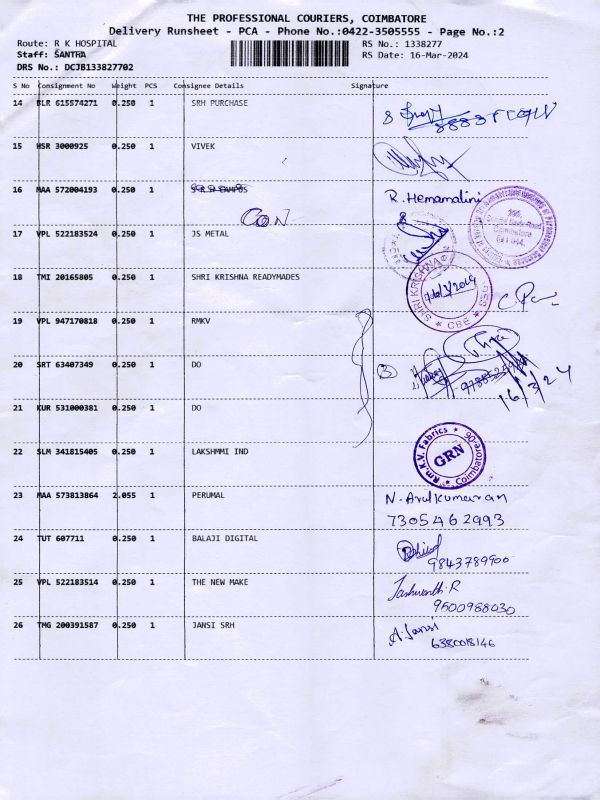 THE PROFESSIONAL COURIERS, COIMBATORE
Delivery Runsheet - PCA - Phone No.:0422-3505555 - Page No.:2
Route: R K HOSPITAL
RS No.: 1338277
Staff: SANTHA
RS Date: 16-Mar-2024
DRS No.: DCJB133827702
S No Consignment No Weight PCS Consignee Details Signature
14 BLR 615574271 0.250 1 SRH PURCHASE
15 HSR 3000925 0.250 1 VIVEK
16 MAA 572004193 0.250 1 R. Hemamalini
CON
17 VPL 522183524 0.250 1 JS METAL
18 TMI 20165805 0.250 1 SHRI KRISHNA READYMADES
SHRI KRISHNA
CBE
19 VPL 947170818 0.250 1 RMKV
20 SRT 63407349 0.250 1 DO
3
16/3/24
21 KUR 531000381 0.250 1 DO
22 SLM 341815405 0.250 1 LAKSHMMI IND
Rm.K.V. Fabrics
GRN
Coimbatore-06
23 MAA 573813864 2.055 1 PERUMAL N. Arulkumaran
7305462993
24 TUT 607711 0.250 1 BALAJI DIGITAL
9843789900
25 VPL 522183514 0.250 1 THE NEW MAKE Jashwanth.R
9500968030
26 TMG 200391587 0.250 1 JANSI SRH A. Jansi
6380018146